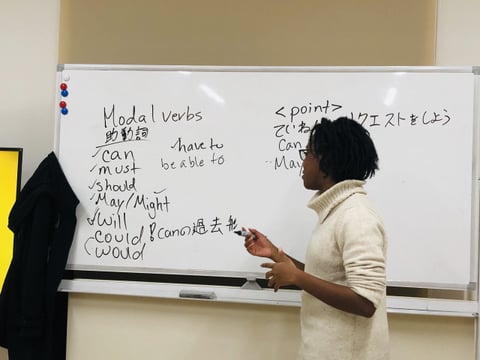 Modal verbs
助動詞
can
must
should
May/Might
will
could ! Canの過去
woud
have to
be able to
<point>
ていね クエストをしよう
Can
May